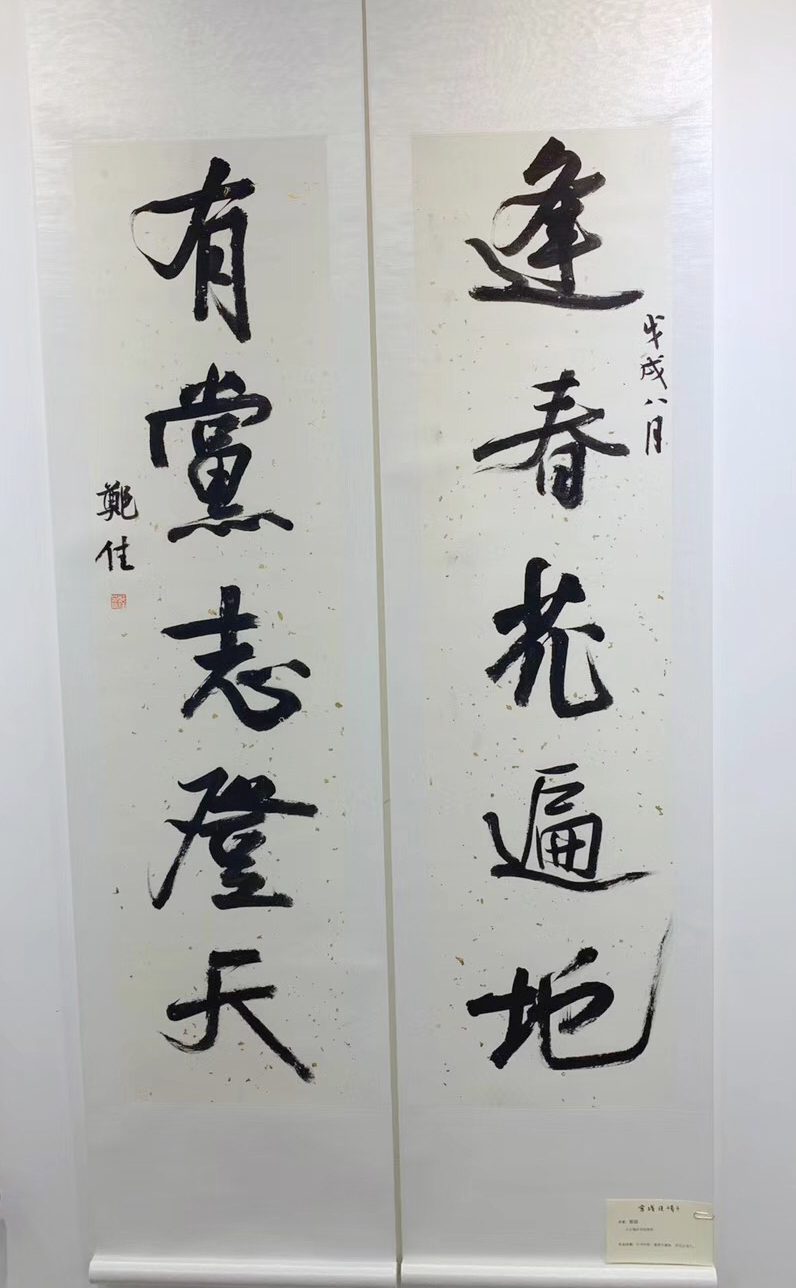 逢春花遍地
戊戌八月
有黨志登天
鄭佳